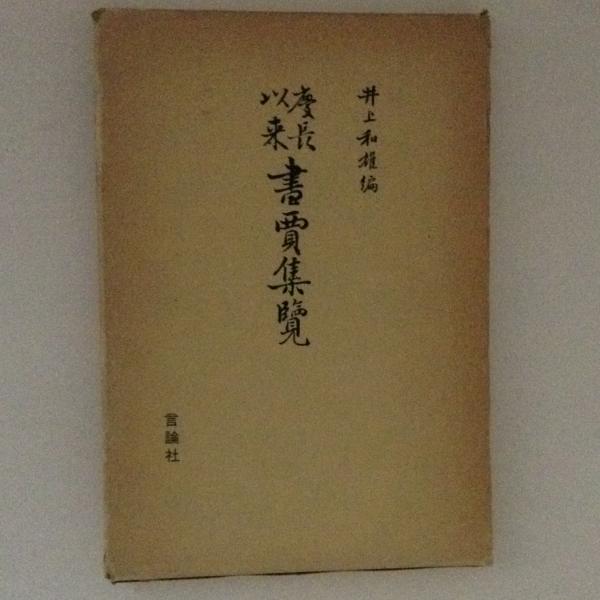 井上和雄編
慶長以来
書賈集覧
言論社